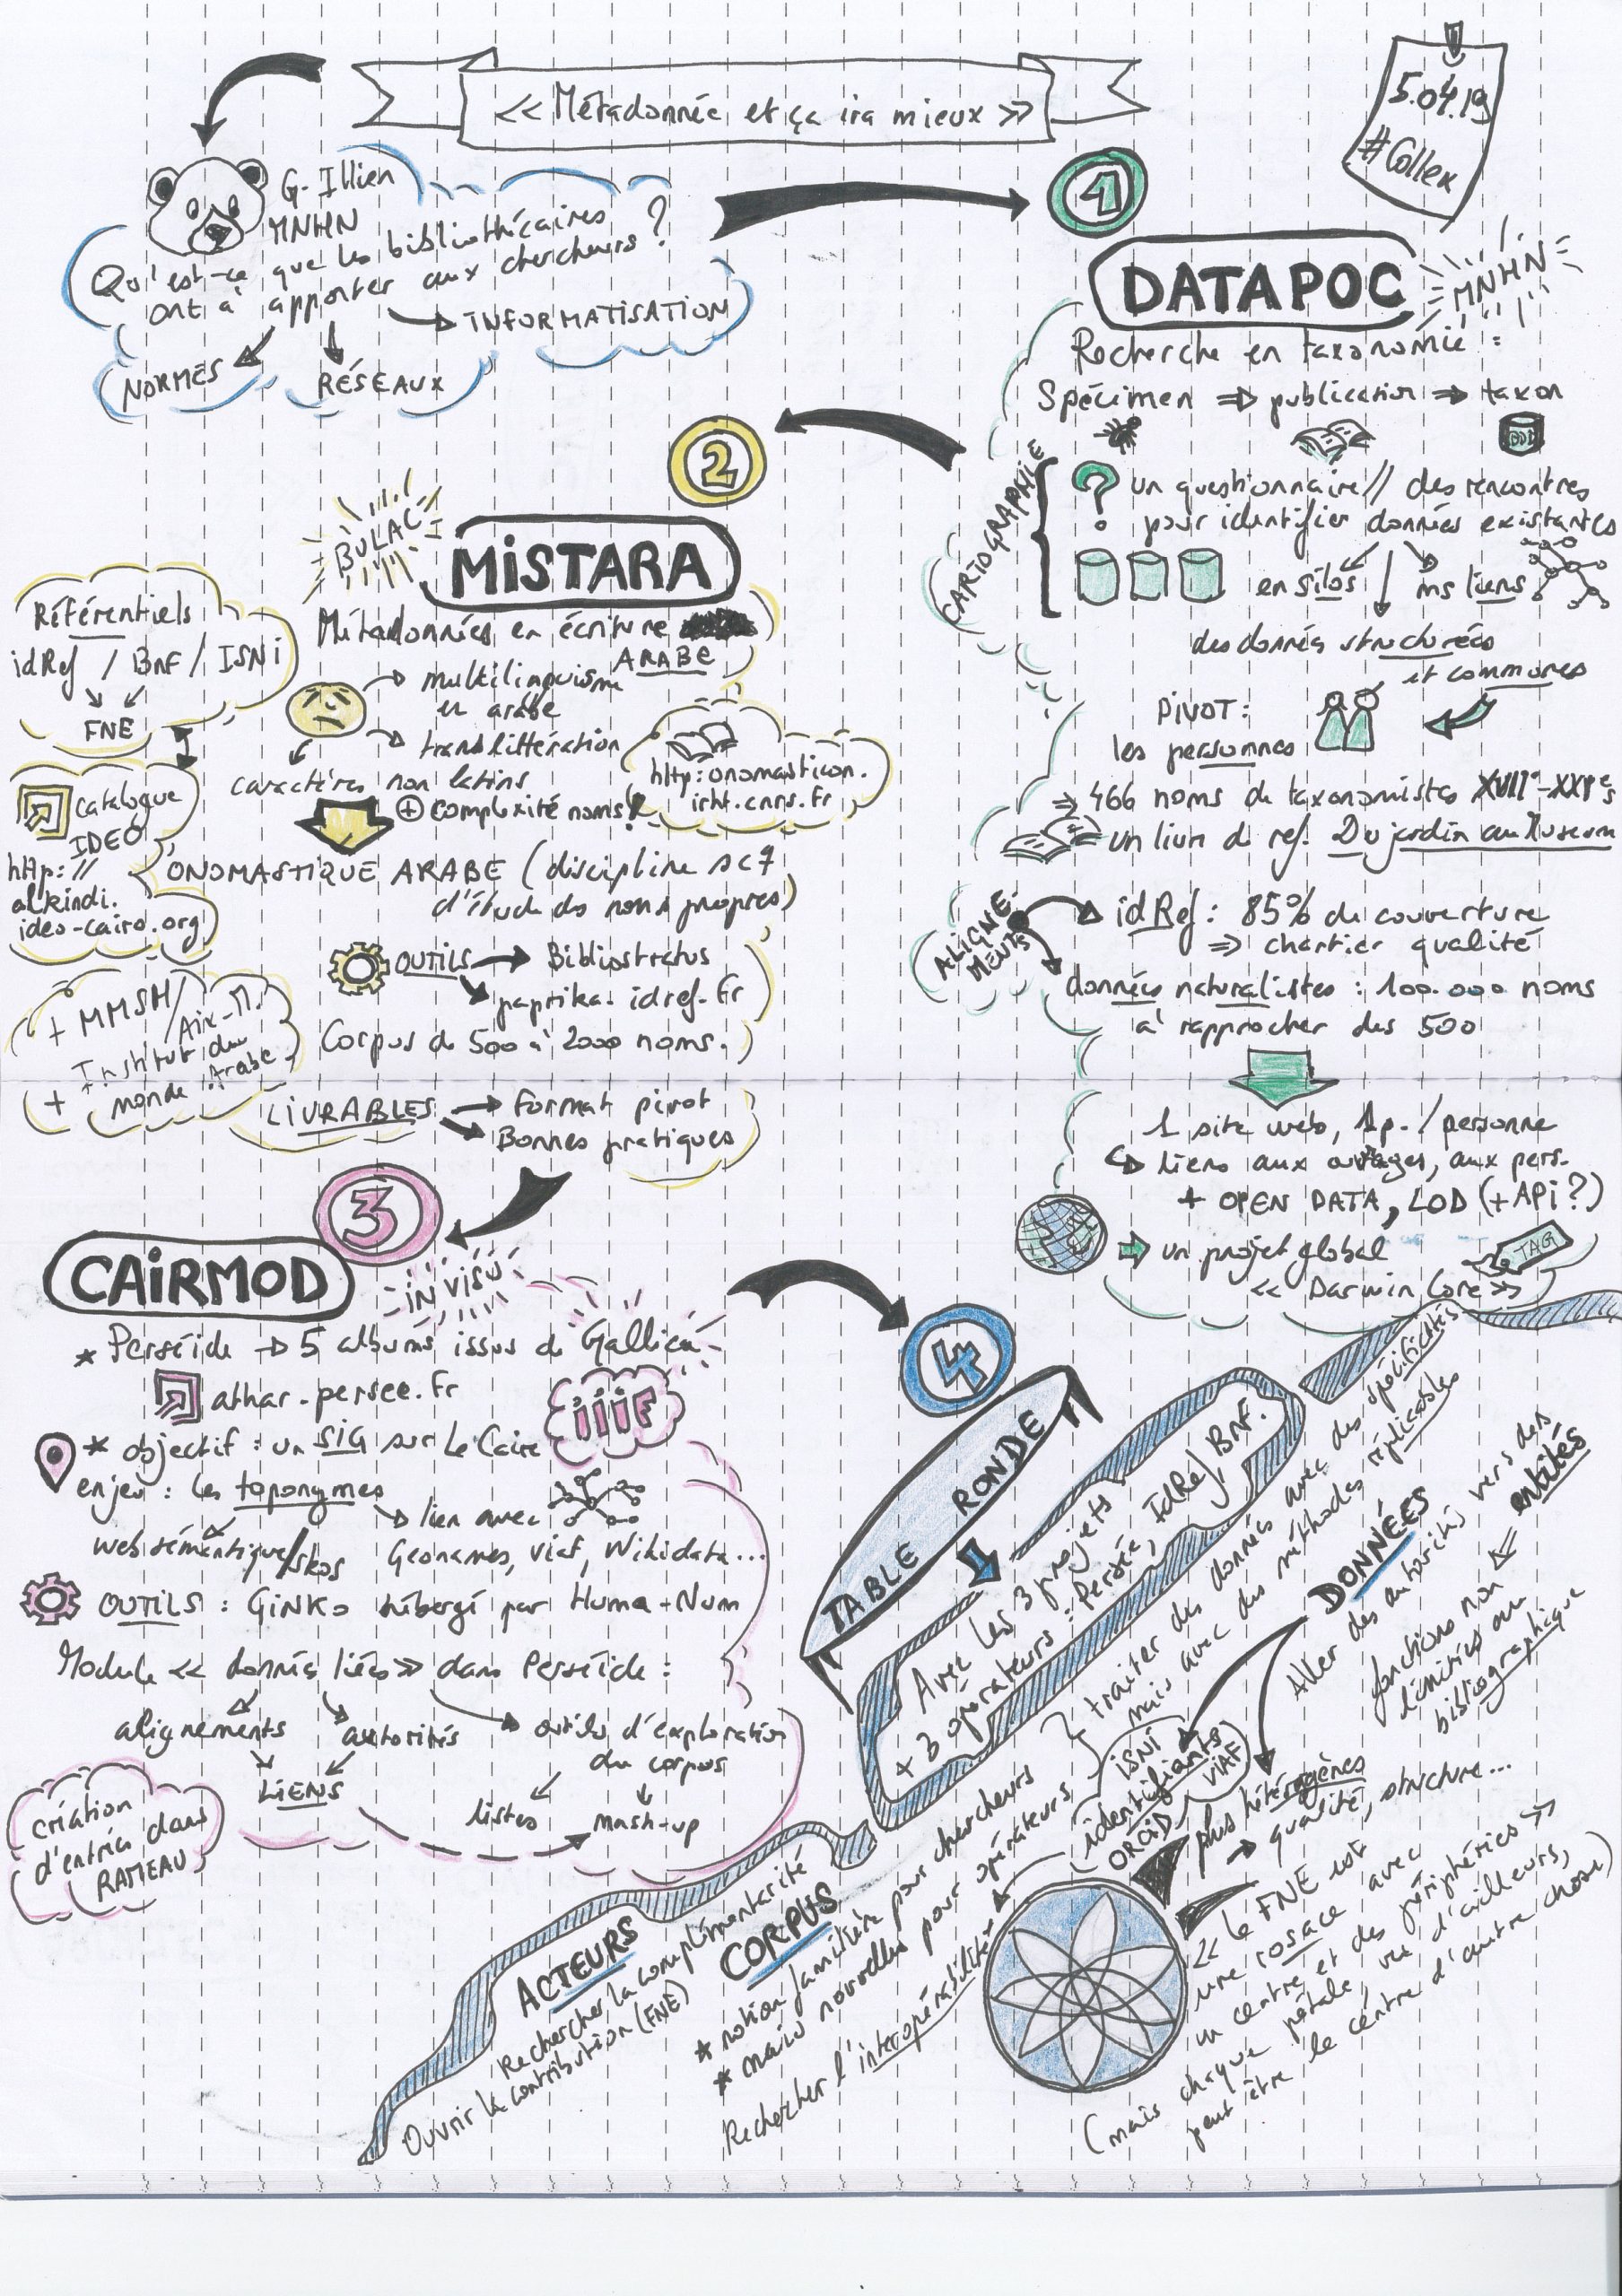 << Métadonnée et ça ira mieux >>
5.04.19
#Collex
G. Illien
MNHN
Qu'est-ce que les bibliothécaires
ont à apporter aux chercheurs ?
INFORMATISATION
NORMES
RÉSEAUX
1
DATAPOC
MNHN
Recherche en taxonomie :
Spécimen ⇒ publication ⇒ taxon
BDD
CARTOGRAPHIE
? un questionnaire // des rencontres
pour identifier données existantes
en silos
ms liens
des données structurées
et communes
PIVOT :
les personnes
⇒ 466 noms de taxonomistes XVIIe-XXIes
un livre de ref. Du jardin au Museum
ALIGNE-
MENTS
idRef : 85% de couverture
⇒ chantier qualité
données naturalistes : 100.000 noms
à rapprocher des 500
1 site web, 1p. / personne
liens aux ouvrages, aux pers.
+ OPEN DATA, LOD (+ API ?)
un projet global
TAG
<< Darwin Core >>
2
BULAC
MISTARA
Métadonnées en écriture
ARABE
multilinguisme
en arabe
translittération
caractères non latins
+ complexité noms !
http:onomasticon.
irht.cnrs.fr
Référentiels
idRef / BnF / ISNI
FNE
catalogue
IDEO
http://
alkindi.
ideo-cairo.org
ONOMASTIQUE ARABE (discipline sc
d'étude des noms propres)
OUTILS → Bibliostratus
paprika.idref.fr
Corpus de 500 à 2000 noms.
+ MMSH/
Aix-M.
+ Institut du
monde Arabe
LIVRABLES → Format pivot
Bonnes pratiques
3
CAIRMOD
INVISU
* Perséide → 5 albums issus de Gallica
athar.persee.fr
iiif
* objectif : un SIG sur Le Caire
enjeu : les toponymes
web sémantique/skos
lien avec
Geonames, Viaf, Wikidata...
OUTILS : GINKo hébergé par Huma-Num
Module << données liées >> dans Perséide :
alignements
autorités
outils d'exploration
du corpus
LIENS
listes
mash-up
création
d'entrées dans
RAMEAU
4
TABLE RONDE
Avec les 3 projets
+ 3 opérateurs : Persée, IdRef, BnF.
traiter des données avec des spécificités
mais avec des méthodes réplicables
ACTEURS
Rechercher la complémentarité
Ouvrir la contribution (FNE)
CORPUS
* notion familière pour chercheurs
* mais nouvelle pour opérateurs
Rechercher l'interopérabilité
DONNÉES
Aller des autorités vers des
entités
fonctions non
limitées au
bibliographique
ISNI
identifiants
VIAF
ORCID
plus hétérogènes
→ qualité, structure...
<< Le FNE est
une rosace avec
un centre et des périphéries >>
(mais chaque pétale, vu d'ailleurs,
peut être le centre d'autre chose)